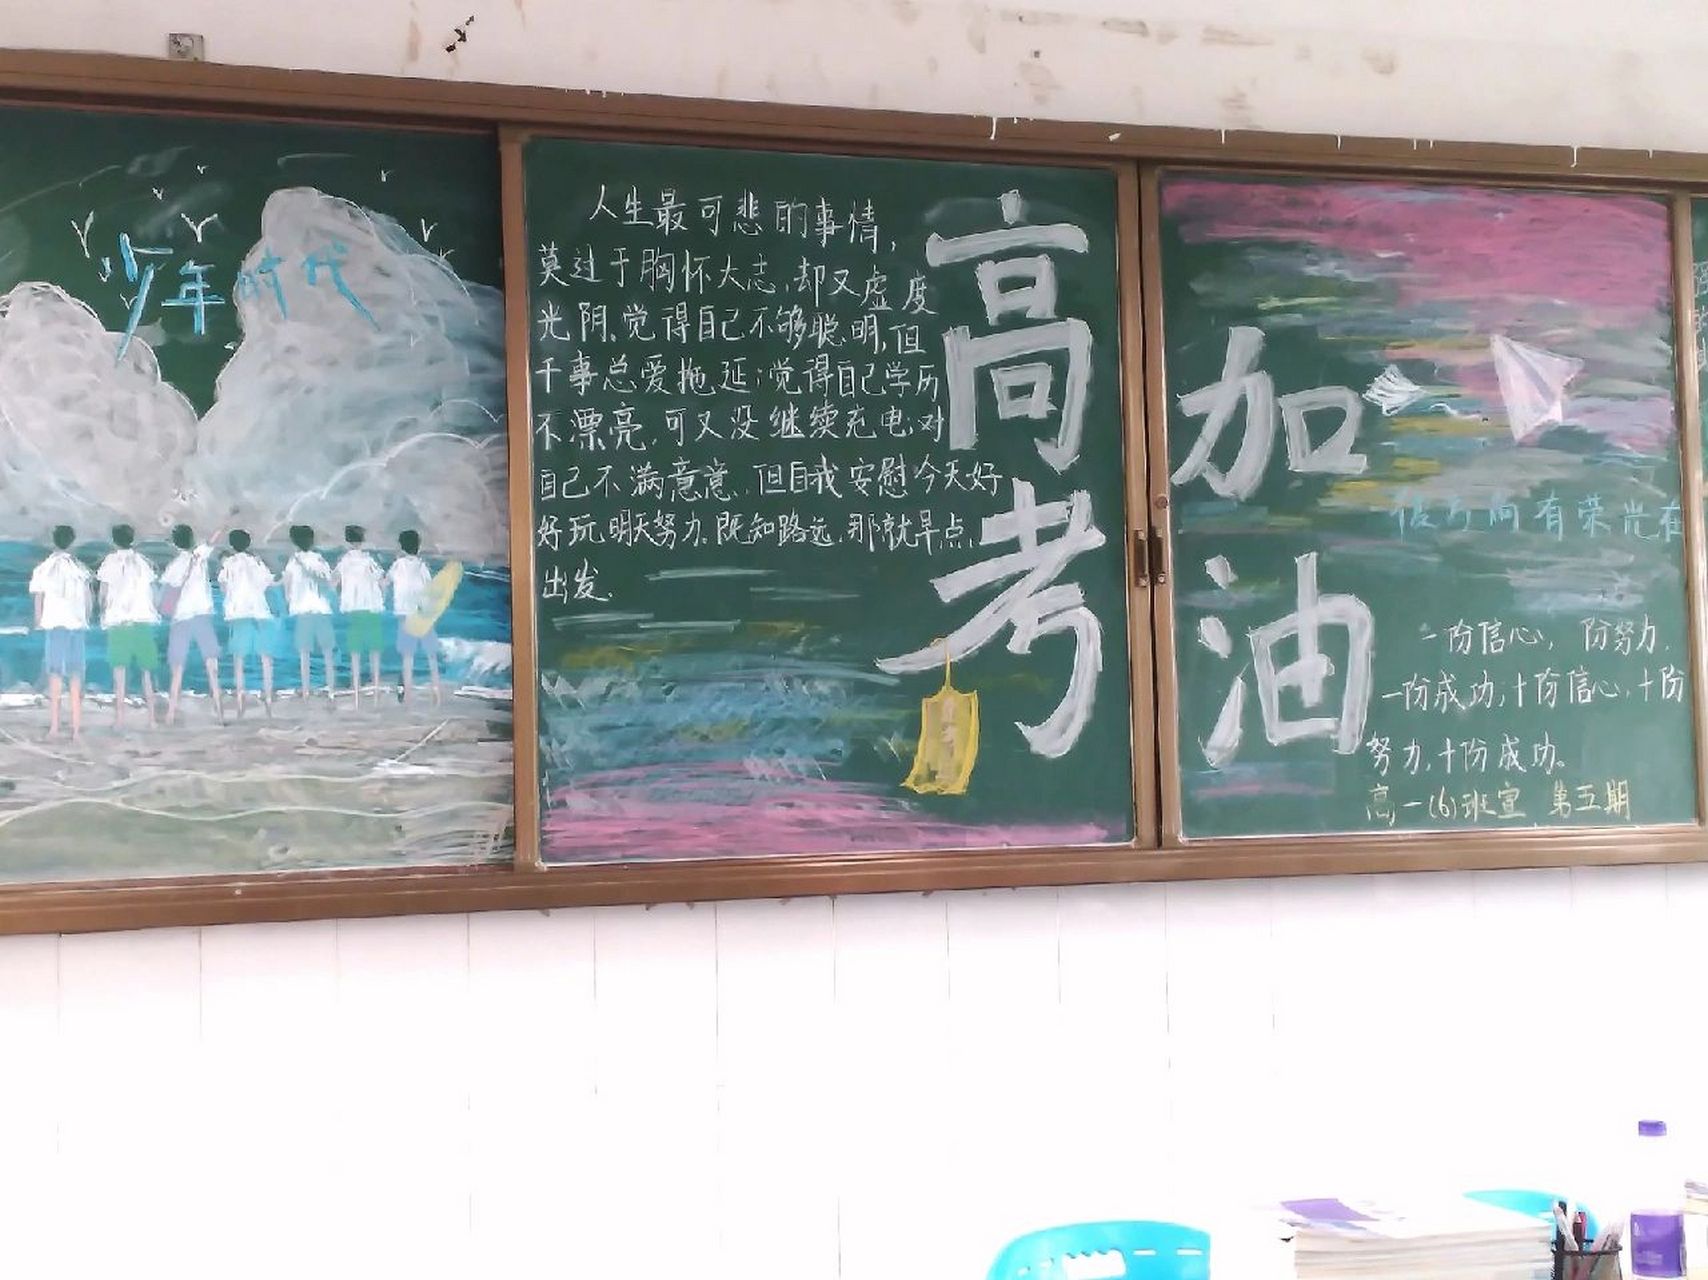 少年时代
人生最可悲的事情，
莫过于胸怀大志，却又虚度
光阴。觉得自己不够聪明，但
干事总爱拖延；觉得自己学历
不漂亮，可又没继续充电；对
自己不满意意，但自我安慰今天好
好玩，明天努力。既知路远，那就早点
出发。
高考
加油
有荣光在
一份信心， 份努力，
一份成功；十份信心，十份
努力，十份成功。
高一(6)班宣 第五期